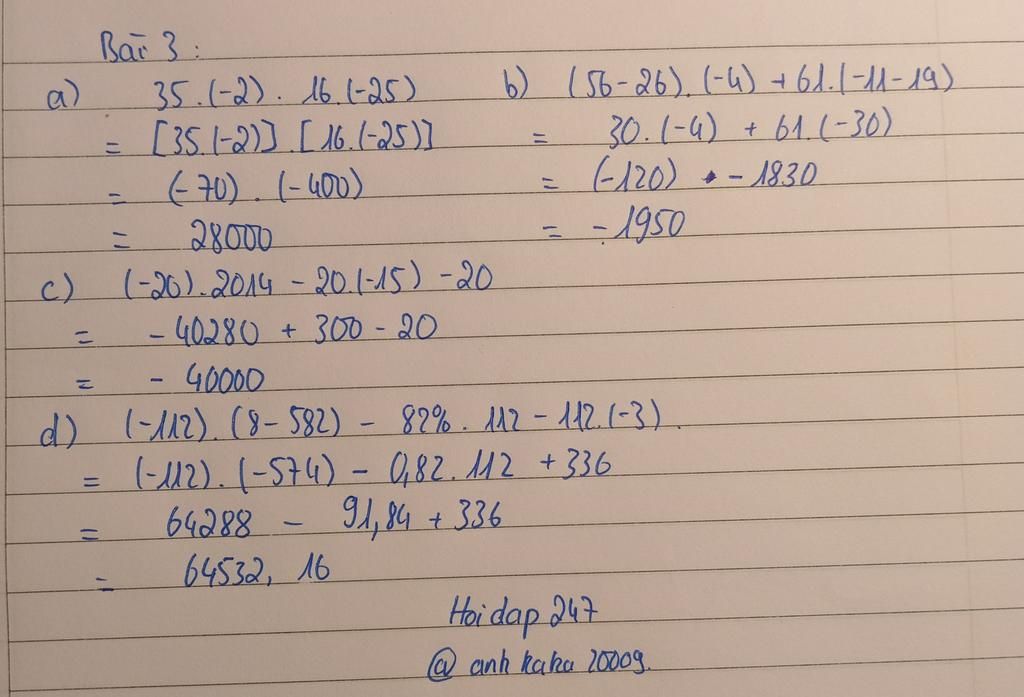 Bài 3 :
a) 35.(-2). 16.(-25)
= [35.(-2)].[16.(-25)]
= (-70).(-400)
= 28000
b) (56-26).(-4) + 61.(-11-19)
= 30.(-4) + 61.(-30)
= (-120) - 1830
= -1950
c) (-20).2014 - 20.(-15) - 20
= - 40280 + 300 - 20
= - 40000
d) (-112).(8-582) - 82%. 112 - 112.(-3).
= (-112).(-574) - 0,82.112 + 336
= 64288 - 91,84 + 336
= 64532, 16
Hoi dap 247
@ anh kaka 2000g.